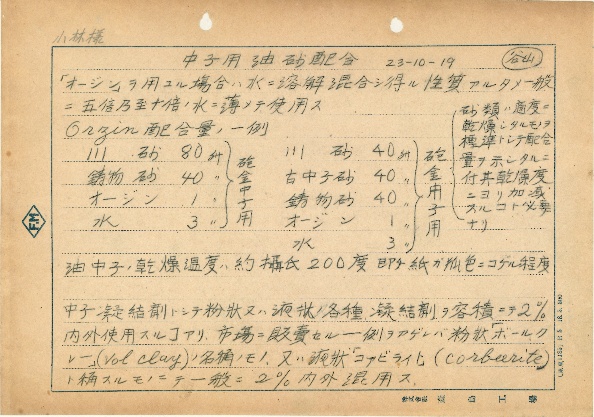 小林様
中子用油砂配合 23-10-19 谷山
「オージン」ヲ用ユル場合ハ水ニ溶解混合シ得ル性質アルタメ一般
ニ五倍乃至十倍ノ水ニ薄メテ使用ス
Orzin配合量ノ一例
川砂 80 升
鋳物砂 40 〃
オージン 1 〃
水 3 〃
砲金中子用
川砂 40 升
古中子砂 40 〃
鋳物砂 40 〃
オージン 1 〃
水 3 〃
砲金用子用
砂類ハ適度ニ
乾燥シタルモノヲ
標準トシテ配合
量ヲ示シタルニ
付其乾燥度
ニヨリ加減
スルコト必要
ナリ
油中子ノ乾燥温度ハ約摂氏200度即チ紙ガ狐色ニコゲル程度
中子凝結剤トシテ粉状又ハ液状ノ各種凝結剤ヲ容積ニテ2%
内外使用スルコアリ、市場ニ販賣セル一例ヲアゲレバ粉状「ボールク
レー」(Vol clay)ノ名称ノモノ、又ハ液状「コアビライト」(corburite)
ト称スルモノニテ一般ニ2%内外混用ス.
FM
株式會社